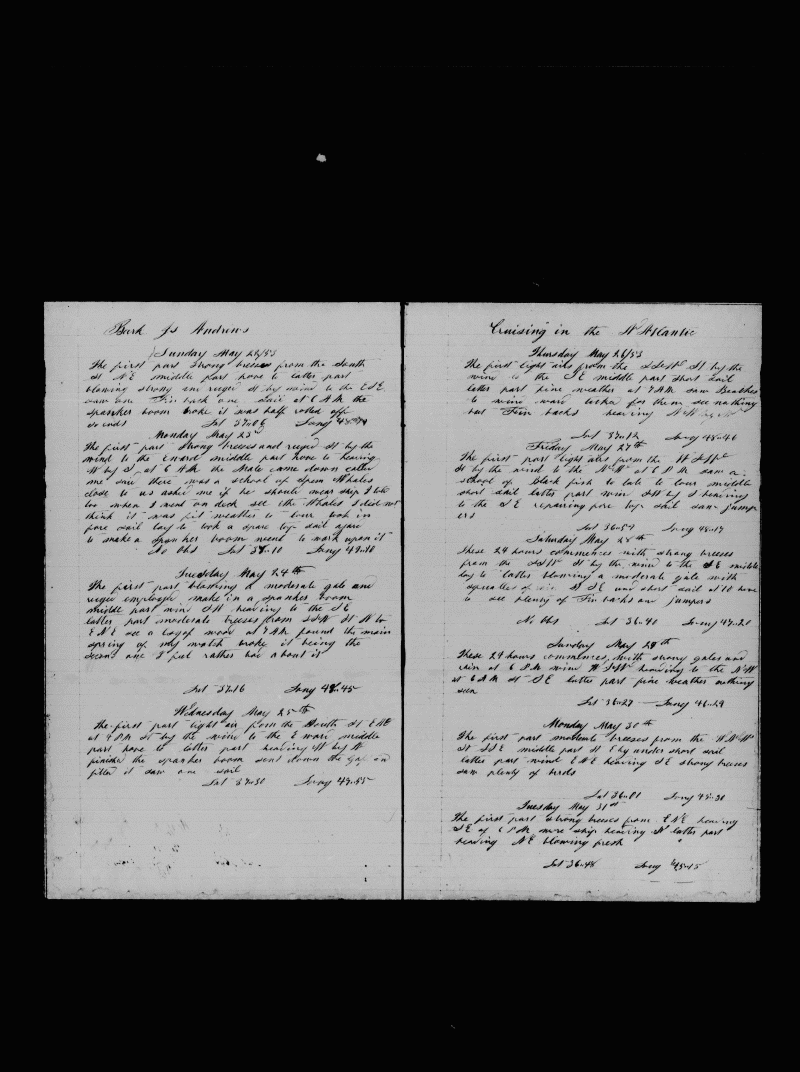 Bark Js Andrews
Sunday May 22/53
The first part strong breeses from the South
St N E middle part hove to latter part
blowing strong and reefed St by wind to the E S E
saw one Fin back one sail at 6 A M the
spanker boom broke it was half rotted off
so ends Lat 37-06 Long
Monday May 23
The first part strong breeses and reefed St by the
wind to the E ward middle part hove to heading
N by S at 6 A M the Mate came down called
me said there was a school of Sperm Whales
close to us asked me if he should wear ship I told
him when I went on deck see the Whales I did not
think it was fit weather to lower took in
fore sail lay to took a spare top sail
to make a spanker boom went to work upon it
No Obs Lat 37-10 Long 49-10
Tuesday May 24th
The first part blowing a moderate gale and
employed make in a spanker boom
middle part wind heading to the S E
latter part moderate breeses from St N to
E N E see a log of wood at 7 A M found the main
spring of my watch broke it being the
second one I feel rather bad about it
Lat 37-16 Long 48-45
Wednesday May 25th
The first part light air from the South St E N E
at 4 P M St by the wind to the E ward middle
part hove to latter part heading by N
finished the spanker boom sent down the gaf and
fited it saw one sail
Lat 37-30 Long 49-55
Cruising in the N Atlantic
Thursday May 26/53
The first light airs from the St by the
wind to the S E middle part short sail
latter part fine weather at 7 A M saw
to wind ward see nothing
but Fin backs heading
Lat 37-12 Long 48-40
Friday May 27th
The first part light airs from the
St by the wind to the N W at 6 P M saw a
school of black fish to late to lower middle
short sail latter part wind by S heading
to the S E repairing fore top sail saw jump
ers
Lat 36-57 Long 48-17
Saturday May 28th
These 24 hours commences with strong breeses
from the St by the wind to the S E middle
lay to latter blowing a moderate gale with
St S E under short sail at 10 hove
to see plenty of Fin backs and jumpers
No Obs Lat 36-40 Long 47-20
Sunday May 29th
These 24 hours commences with strong gales and
rain at 6 P M wind heading to the N W
at 6 A M St S E latter part fine weather nothing
seen
Lat 36-27 Long 46-29
Monday May 30th
The first part moderate breeses from the W N W
St S S E middle part St E by under short sail
latter part wind E N E heading S E strong breeses
saw plenty of birds
Lat 36-01 Long 45-30
Tuesday May 31st
The first part strong breeses from E N E heading
S E at 6 P M wore ship heading N latter part
heading N E blowing fresh
Lat 36-48 Long 45-15